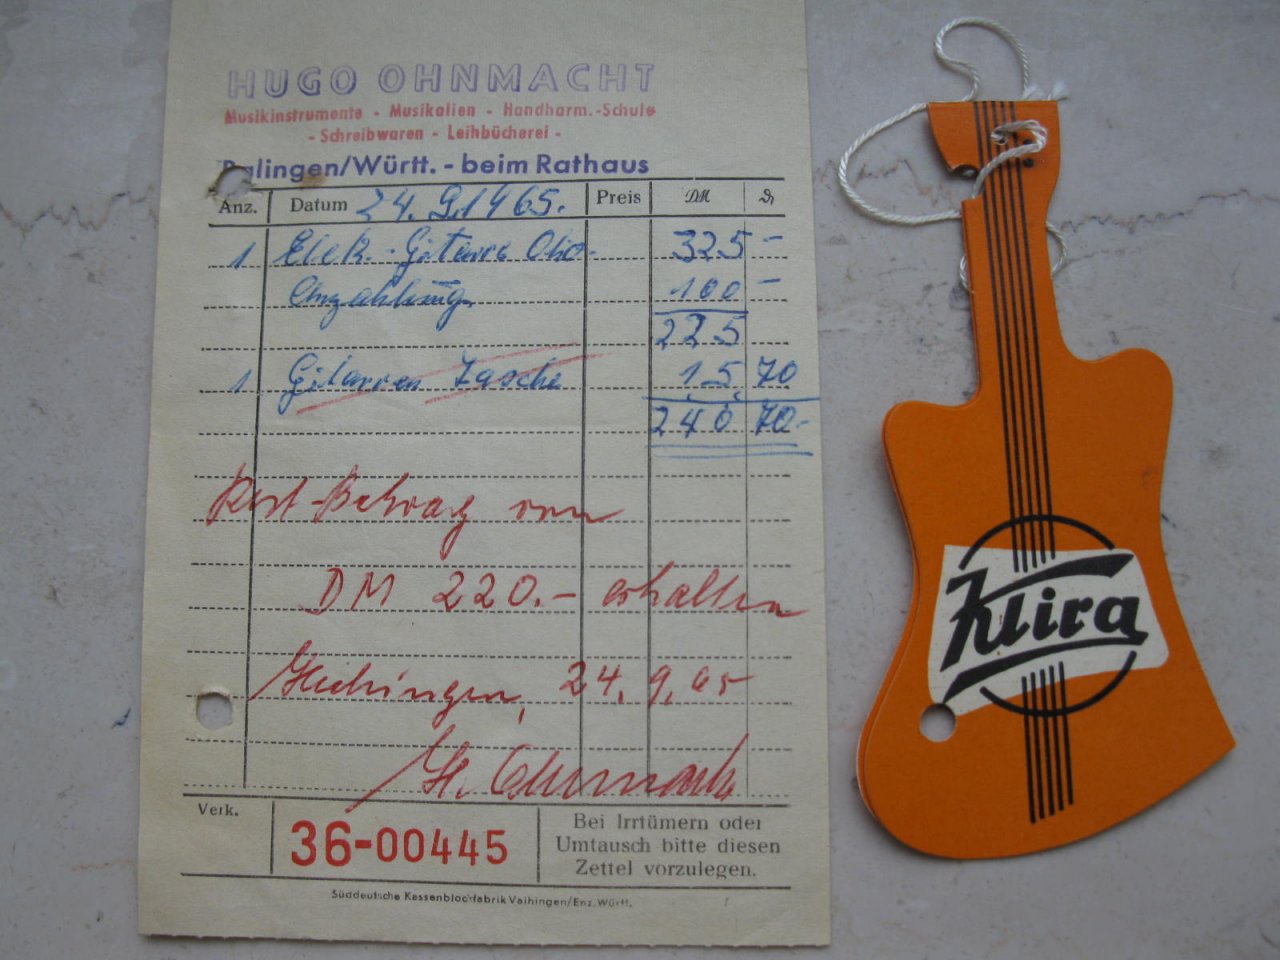 HUGO OHNMACHT
Musikinstrumente - Musikalien - Handharm.-Schule
- Schreibwaren - Leihbücherei -
Balingen/Württ. - beim Rathaus
Anz. Datum 24.9.1965. Preis DM ₰
1 Elek. Gitarre Ohio- 325 -
Anzahlung 100 -
225
1 Gitarren Tasche 15 70
240 70-
Rest-Betrag von
DM 220.- erhalten
Hechingen, 24.9.65
H. Ohnmacht
Verk.
36-00445
Bei Irrtümern oder
Umtausch bitte diesen
Zettel vorzulegen.
Süddeutsche Kassenblockfabrik Vaihingen/Enz. Württ.
Klira